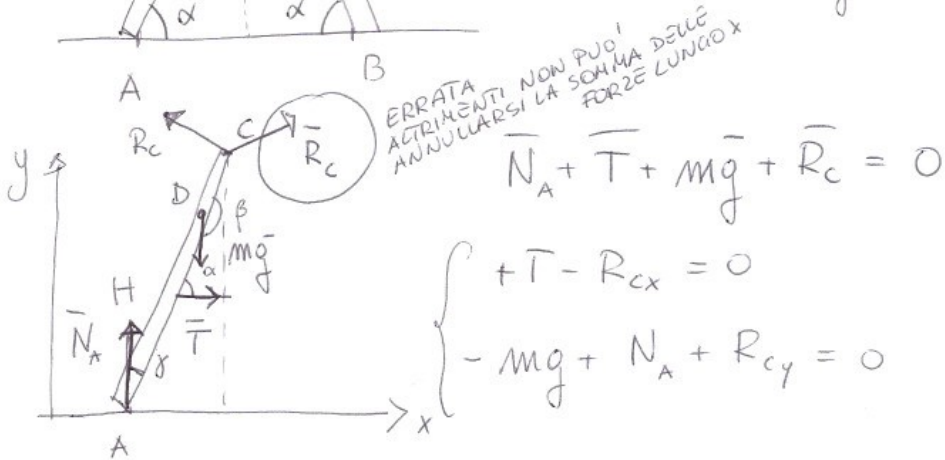 α α
A B
ERRATA
ALTRIMENTI NON PUO'
ANNULLARSI LA SOMMA DELLE
FORZE LUNGO X
R_C C R̄_C
y
D β
mḡ
α
H
N̄_A T̄
γ
A x
N̄_A + T̄ + mḡ + R̄_C = 0
+T - R_Cx = 0
- mg + N_A + R_Cy = 0